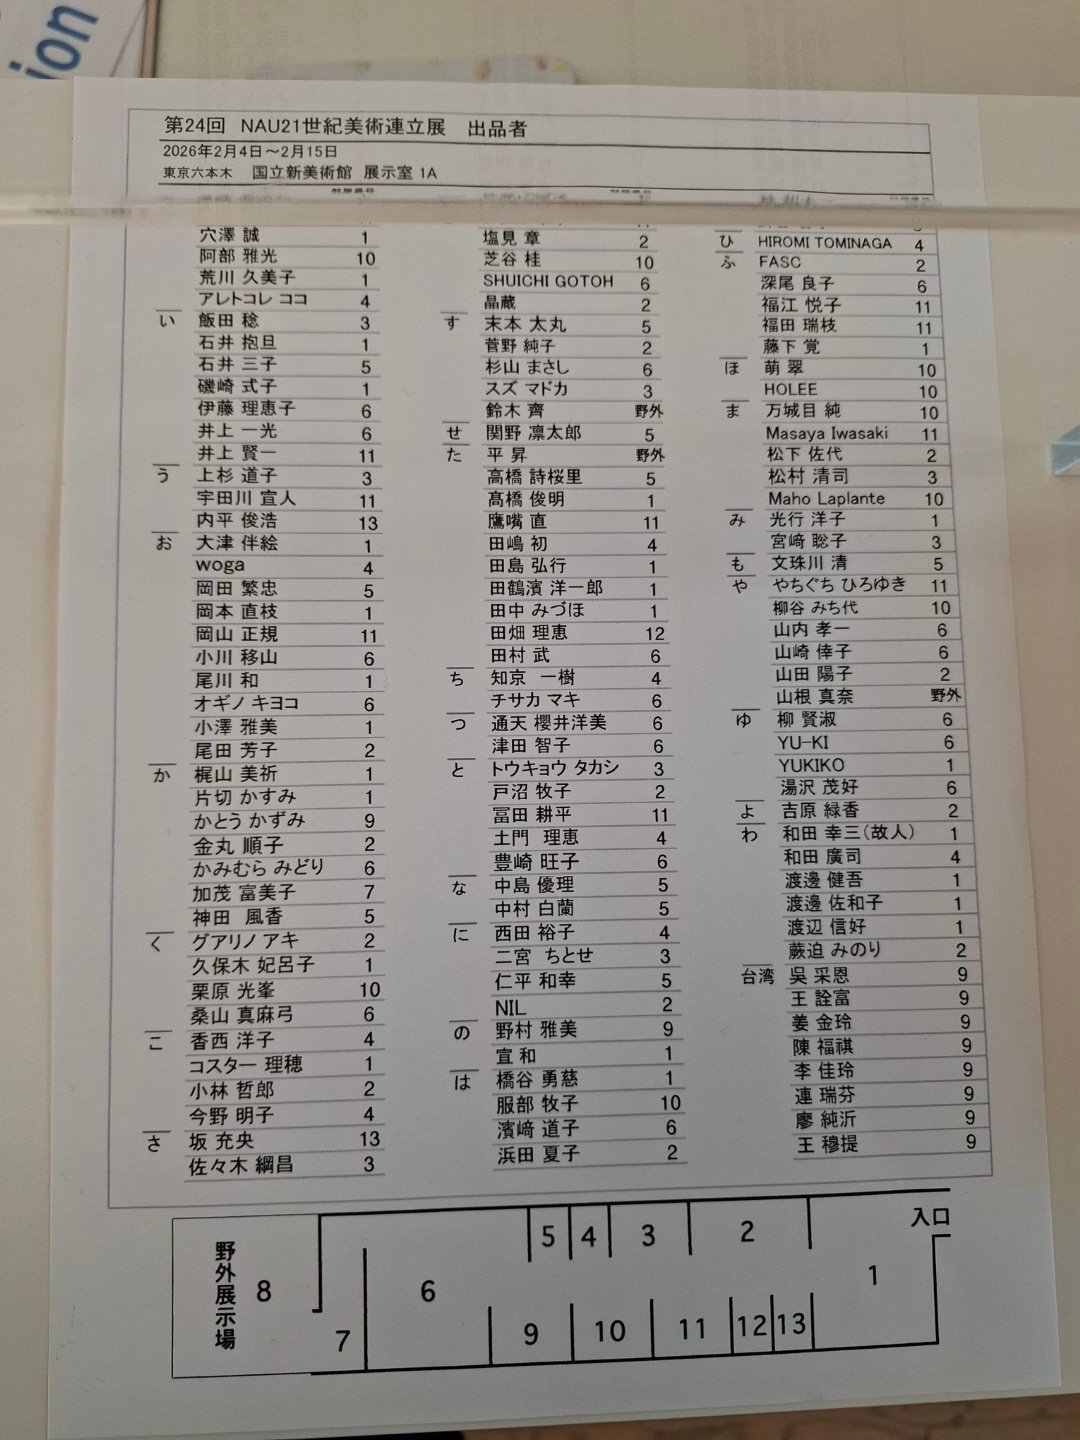 ion
第24回 NAU21世紀美術連立展 出品者
2026年2月4日～2月15日
東京六本木 国立新美術館 展示室 1A
穴澤 誠 1
阿部 雅光 10
荒川 久美子 1
アレトコレ ココ 4
い 飯田 稔 3
石井 抱旦 1
石井 三子 5
磯崎 式子 1
伊藤 理恵子 6
井上 一光 6
井上 賢一 11
う 上杉 道子 3
宇田川 宣人 11
内平 俊浩 13
お 大津 伴絵 1
woga 4
岡田 繁忠 5
岡本 直枝 1
岡山 正規 11
小川 移山 6
尾川 和 1
オギノ キヨコ 6
小澤 雅美 1
尾田 芳子 2
か 梶山 美祈 1
片切 かすみ 1
かとう かずみ 9
金丸 順子 2
かみむら みどり 6
加茂 富美子 7
神田 風香 5
く グアリノ アキ 2
久保木 妃呂子 1
栗原 光峯 10
桑山 真麻弓 6
こ 香西 洋子 4
コスター 理穂 1
小林 哲郎 2
今野 明子 4
さ 坂 充央 13
佐々木 綱昌 3
塩見 章 2
芝谷 桂 10
SHUICHI GOTOH 6
晶蔵 2
す 末本 太丸 5
菅野 純子 2
杉山 まさし 6
スズ マドカ 3
鈴木 齊 野外
せ 関野 凛太郎 5
た 平 昇 野外
高橋 詩桜里 5
髙橋 俊明 1
鷹嘴 直 11
田嶋 初 4
田島 弘行 1
田鶴濱 洋一郎 1
田中 みづほ 1
田畑 理恵 12
田村 武 6
ち 知京 一樹 4
チサカ マキ 6
つ 通天 櫻井洋美 6
津田 智子 6
と トウキョウ タカシ 3
戸沼 牧子 2
冨田 耕平 11
土門 理恵 4
豊崎 旺子 6
な 中島 優理 5
中村 白蘭 5
に 西田 裕子 4
二宮 ちとせ 3
仁平 和幸 5
NIL 2
の 野村 雅美 9
宣 和 1
は 橋谷 勇慈 1
服部 牧子 10
濱﨑 道子 6
浜田 夏子 2
ひ HIROMI TOMINAGA 4
ふ FASC 2
深尾 良子 6
福江 悦子 11
福田 瑞枝 11
藤下 覚 1
ほ 萌 翠 10
HOLEE 10
ま 万城目 純 10
Masaya Iwasaki 11
松下 佐代 2
松村 清司 3
Maho Laplante 10
み 光行 洋子 1
宮﨑 聡子 3
も 文珠川 清 5
や やちぐち ひろゆき 11
柳谷 みち代 10
山内 孝一 6
山崎 倖子 6
山田 陽子 2
山根 真奈 野外
ゆ 柳 賢淑 6
YU-KI 6
YUKIKO 1
湯沢 茂好 6
よ 吉原 緑香 2
わ 和田 幸三(故人) 1
和田 廣司 4
渡邊 健吾 1
渡邊 佐和子 1
渡辺 信好 1
蕨迫 みのり 2
台湾 吳 采恩 9
王 詮富 9
姜 金玲 9
陳 福祺 9
李 佳玲 9
連 瑞芬 9
廖 純沂 9
王 穆提 9
入口
5 4 3 2
1
野外展示場
8
6
7
9 10 11 12 13